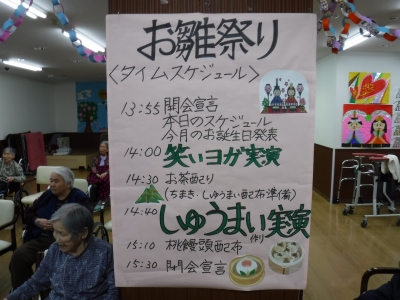 お雛祭り
<タイムスケジュール>
13:55 開会宣言
本日のスケジュール
今月のお誕生日発表
14:00 笑いヨガ実演
14:30 お茶配り
(ちまき・しゅうまい配布準備)
14:40 しゅうまい作り実演
15:10 桃饅頭配布
15:30 閉会宣言